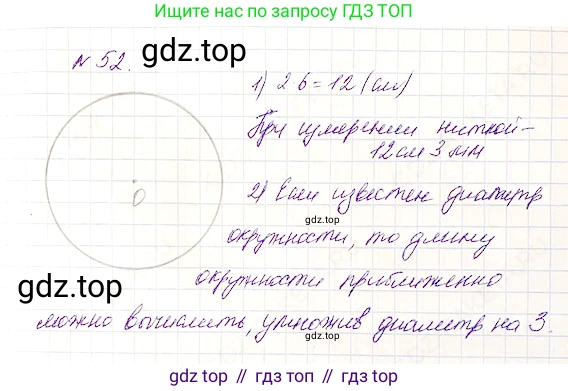 Ищите нас по запросу ГДЗ ТОП
gdz.top
N 52.
1) 2 6 = 12 (см)
При измерении ниткой -
12 см 3 мм
O
gdz.top
2) Если известен диаметр
окружности, то длину
gdz.top
окружности приближенно
можно вычислить, умножив диаметр на 3.
gdz.top
gdz.top // гдз топ // гдз.top